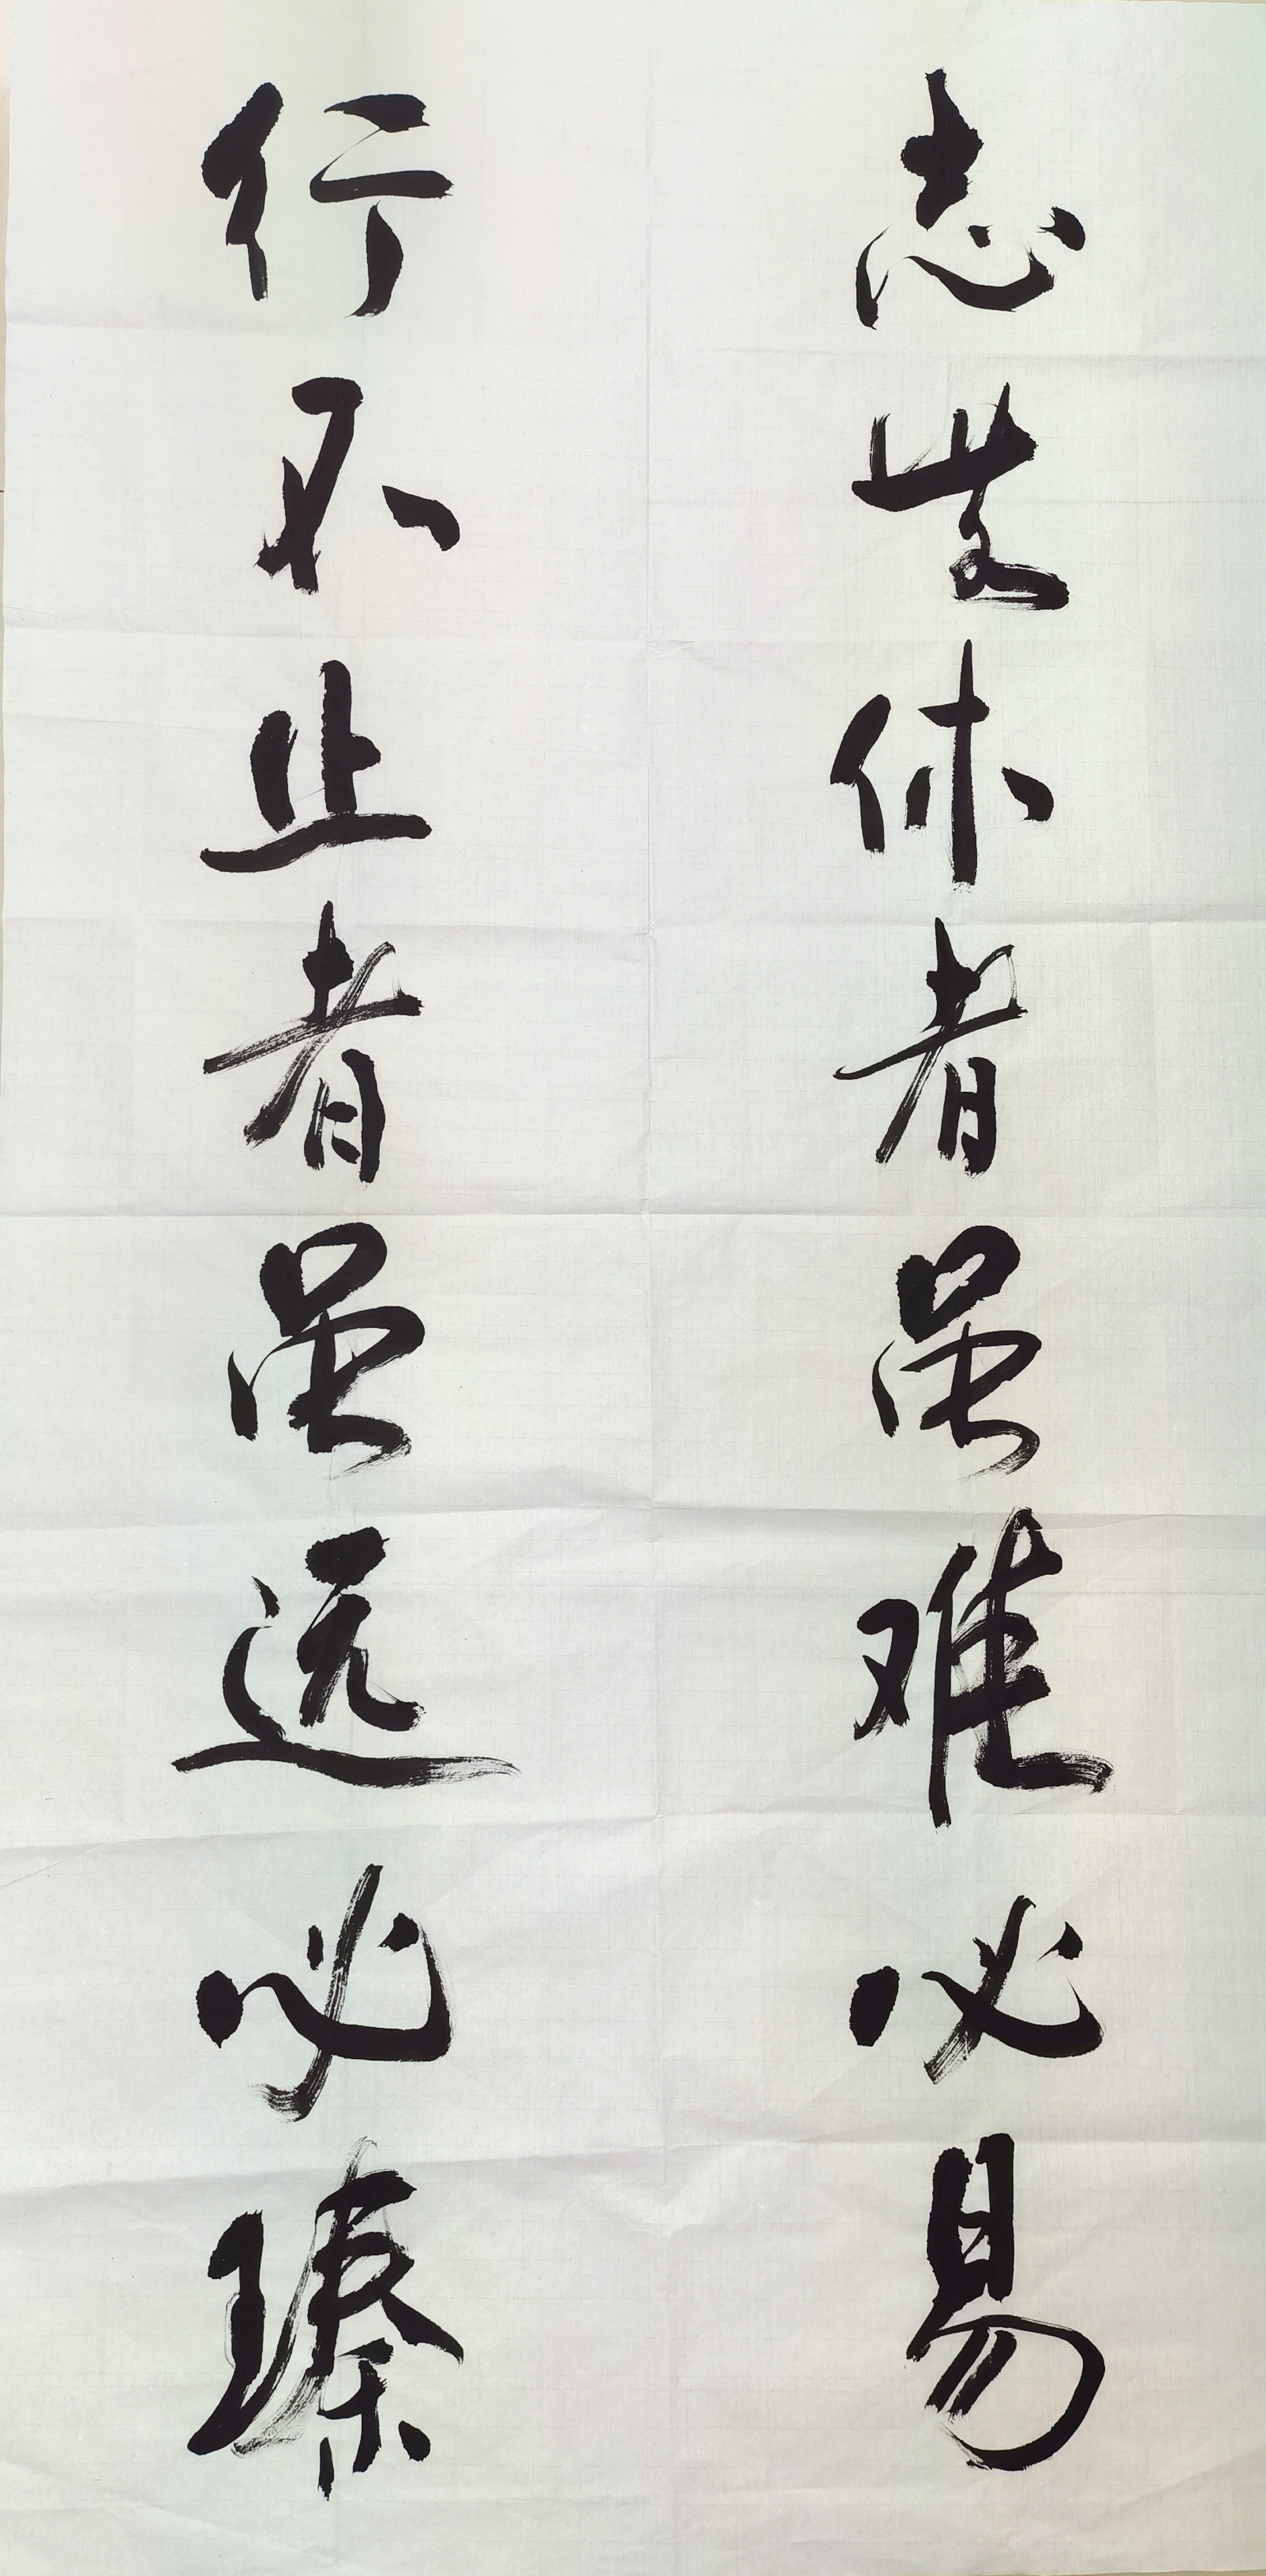 志無休者虽难必易
行不止者虽远必臻